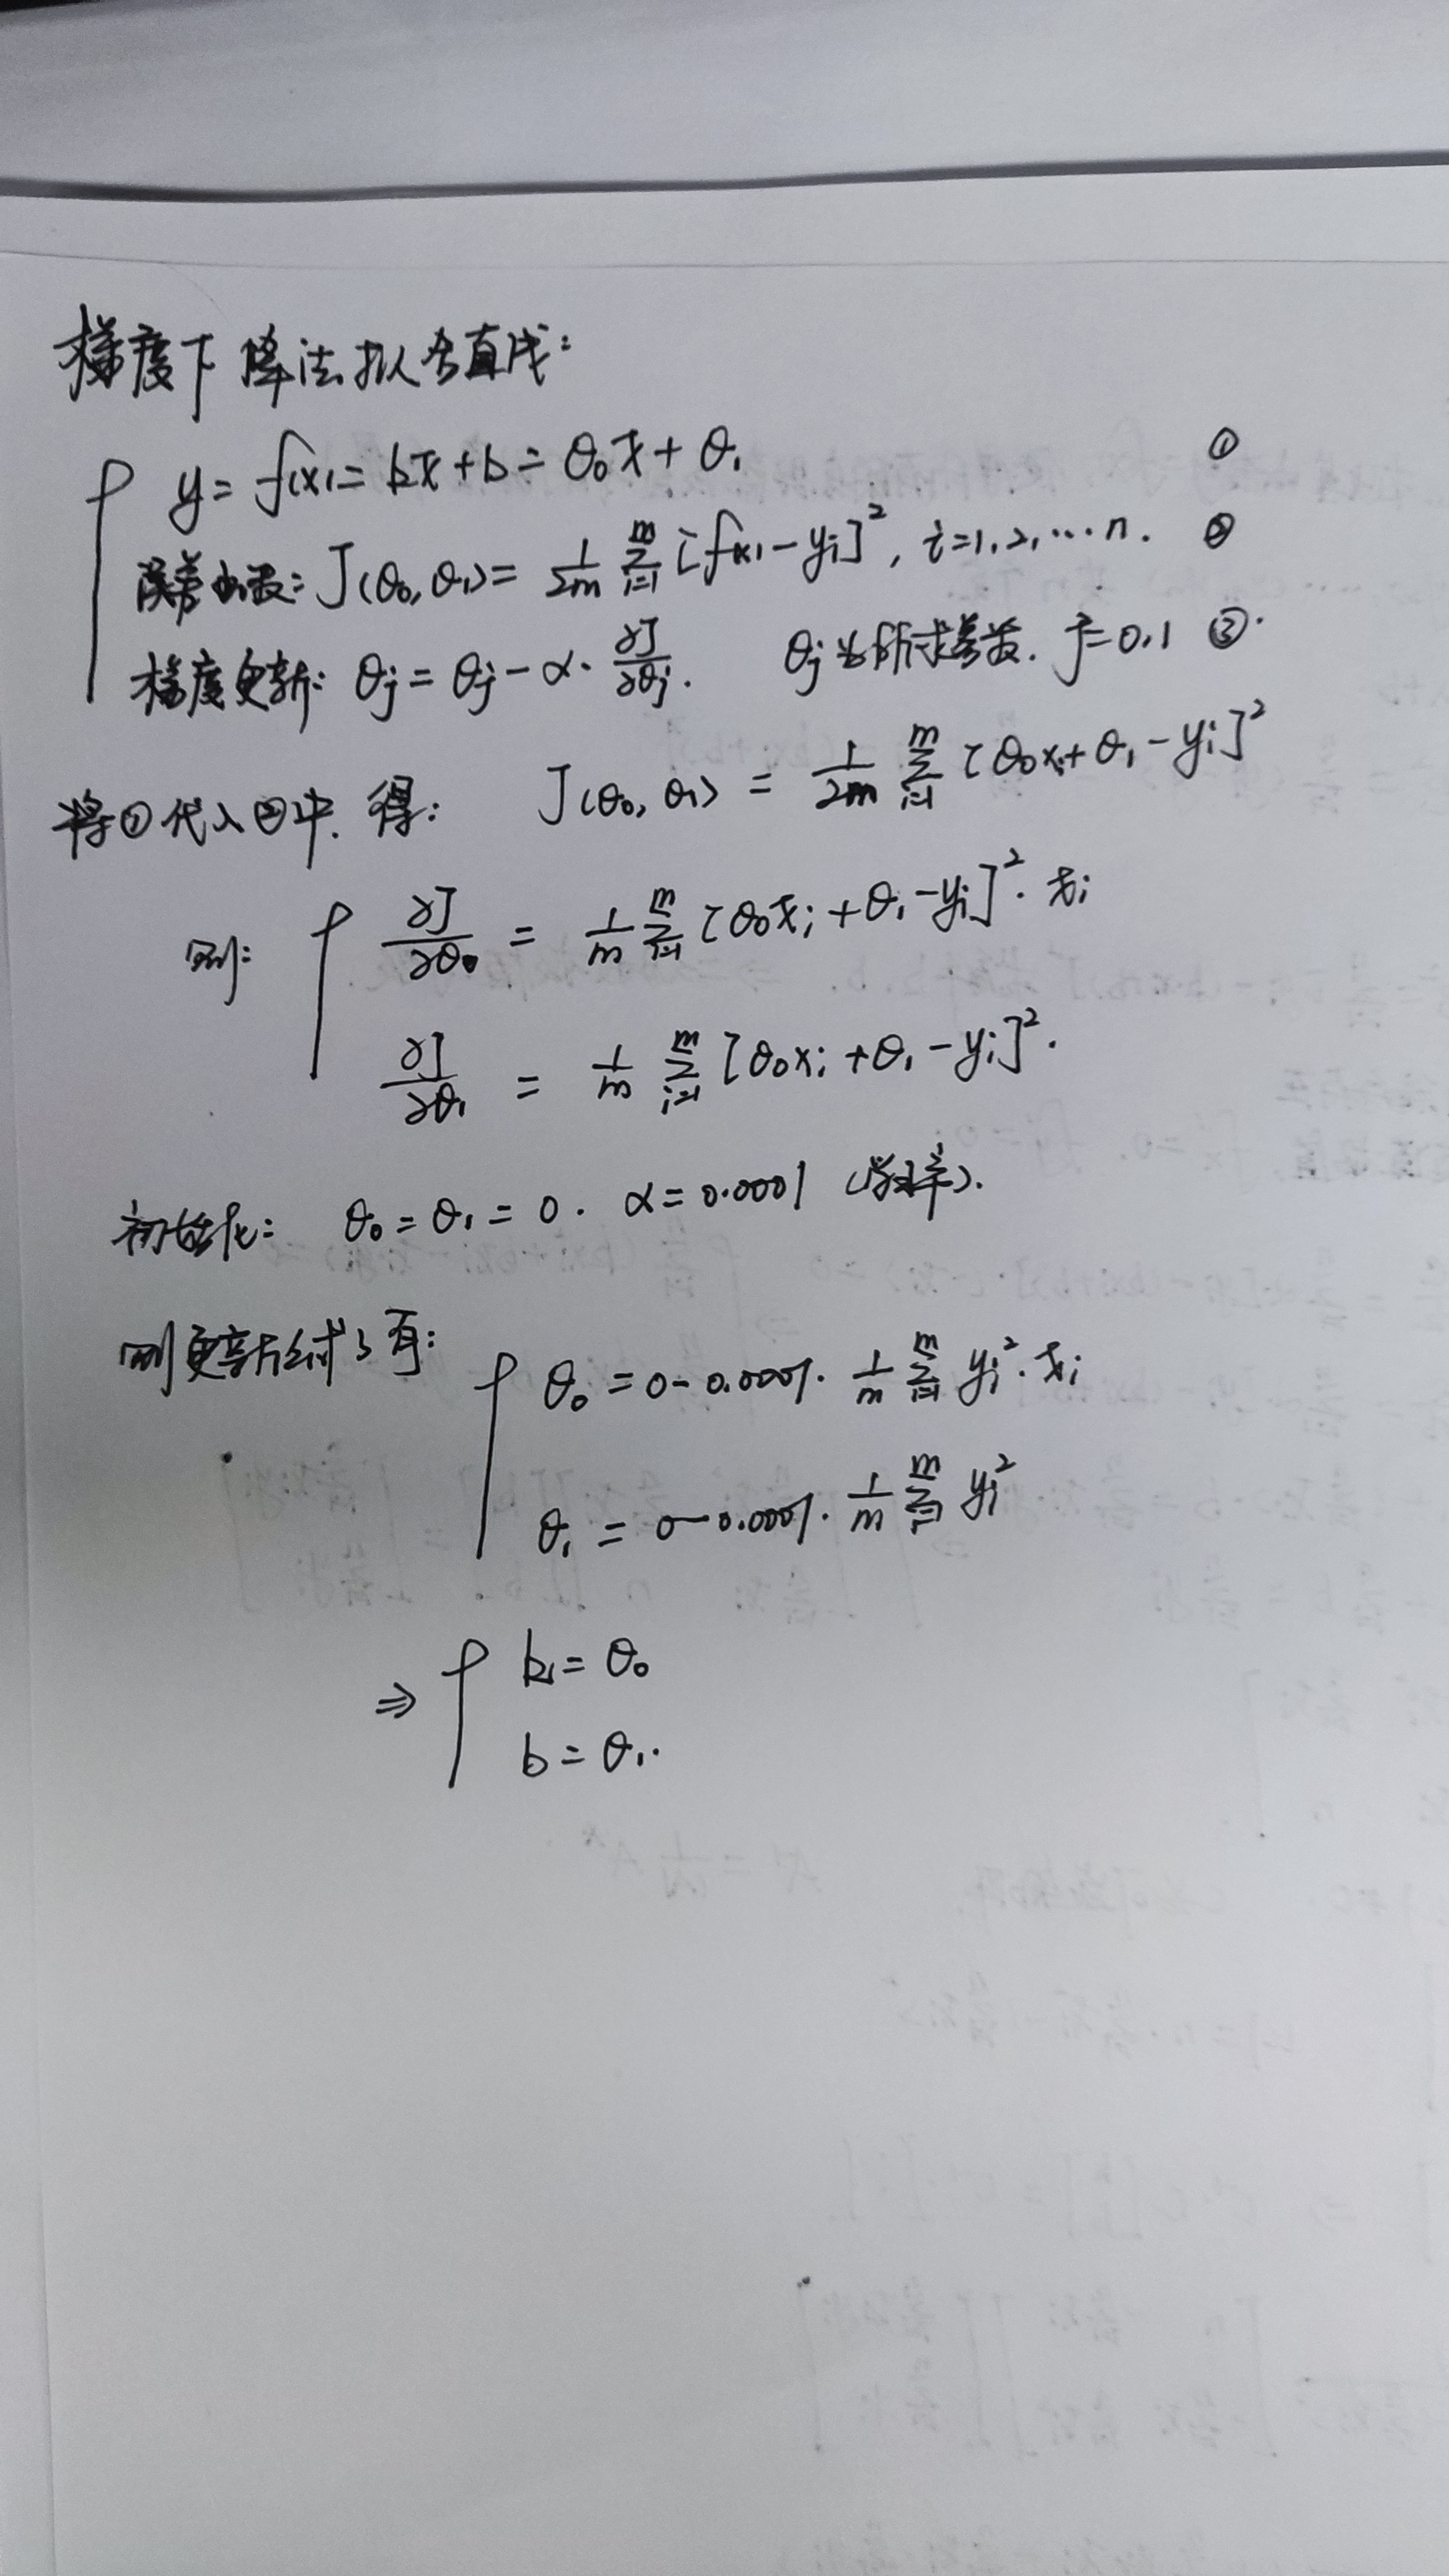 梯度下降法拟合直线:
y = f(x) = kx + b = θ₀x + θ₁ ①
误差函数: J(θ₀, θ₁) = 1/2m Σᵢ₌₁ᵐ [f(x) - yᵢ]², i=1,2,…n. ②
梯度更新: θⱼ = θⱼ - α · ∂J/∂θⱼ. θⱼ为所求参数. j=0,1 ③.
将①代入②中. 得: J(θ₀, θ₁) = 1/2m Σᵢ₌₁ᵐ [θ₀xᵢ + θ₁ - yᵢ]²
则: { ∂J/∂θ₀ = 1/m Σᵢ₌₁ᵐ [θ₀xᵢ + θ₁ - yᵢ]² · xᵢ
∂J/∂θ₁ = 1/m Σᵢ₌₁ᵐ [θ₀xᵢ + θ₁ - yᵢ]².
初始化: θ₀ = θ₁ = 0. α = 0.0001 (学习率).
则更新公式③有: { θ₀ = 0 - 0.0001 · 1/m Σᵢ₌₁ᵐ yᵢ² · xᵢ
θ₁ = 0 - 0.0001 · 1/m Σᵢ₌₁ᵐ yᵢ²
⇒ { k = θ₀
b = θ₁.